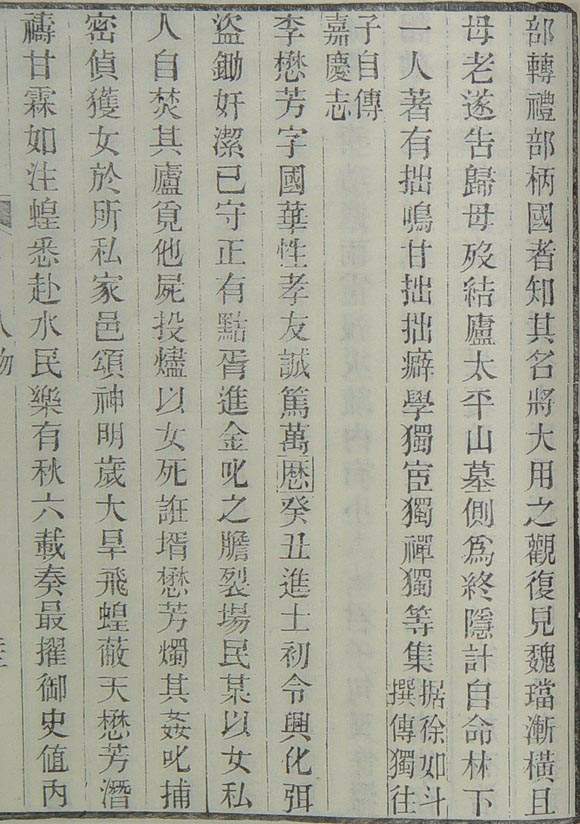 部轉禮部柄國者知其名將大用之觀復見魏璫漸橫且
母老遂告歸母歿結廬太平山墓側爲終隱計自命林下
一人著有拙鳴甘拙拙癖學獨宦獨禪獨等集
据徐如斗
撰傳獨往
子自傳
嘉慶志
李懋芳字國華性孝友誠篤萬曆癸丑進士初令興化弭
盜鋤奸潔已守正有黠胥進金叱之膽裂場民某以女私
人自焚其廬覓他屍投燼以女死誑壻懋芳燭其姦叱捕
密偵獲女於所私家邑頌神明歲大旱飛蝗蔽天懋芳潛
禱甘霖如注蝗悉赴水民樂有秋六載奏最擢御史值內